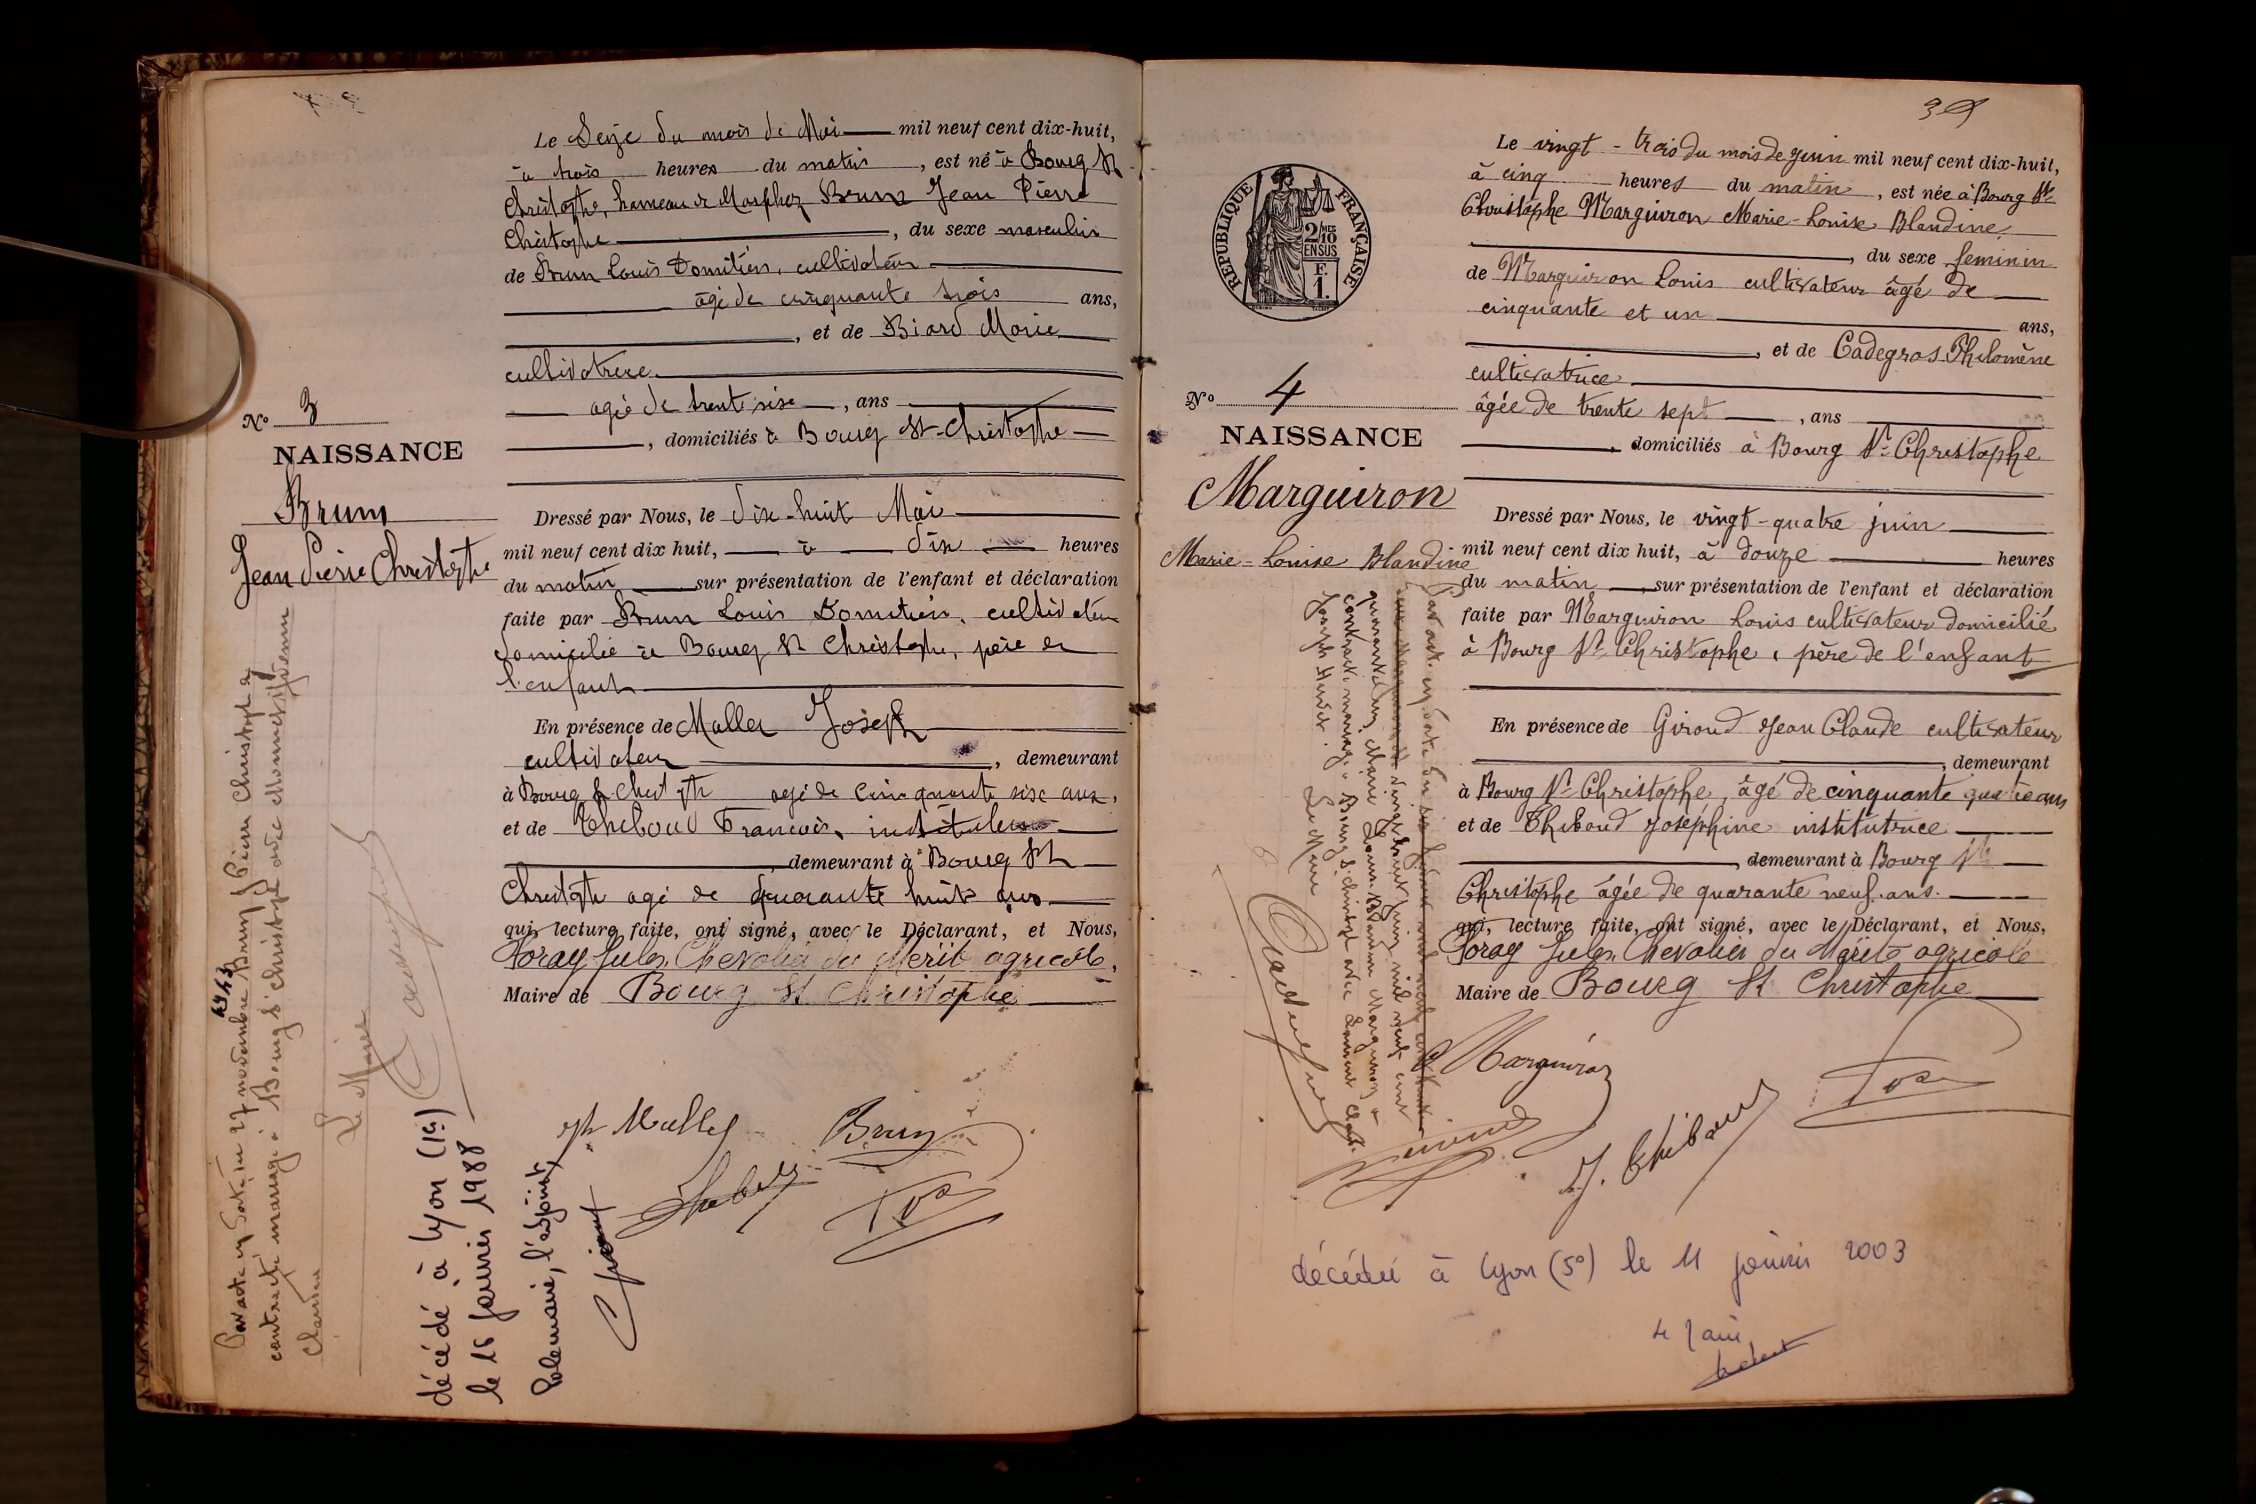 Le Seize du mois de Mai mil neuf cent dix-huit,
à trois heures du matin, est né à Bourg St
Christophe, hameau de Brun Jean Pierre
Christophe, du sexe masculin
de Brun Louis Domitien, cultivateur
âgé de cinquante trois ans,
, et de Biard Marie
cultivatrice
agée de trent sise, ans
, domiciliés à Bourg St-Christophe
No 3
NAISSANCE
Brun
Jean Pierre Christophe
Dressé par Nous, le dix-huit Mai
mil neuf cent dix huit, à dix heures
du matin sur présentation de l'enfant et déclaration
faite par Brun Louis Domitien, cultivateur
domicilié à Bourg St Christophe, père de
l'enfant
En présence de Joseph
cultivateur, demeurant
à Bourg St Christophe agé de cinquante sise ans,
et de Thiboud François, instituteur
, demeurant à Bourg St
Christophe agé de quarante huit ans
qui, lecture faite, ont signé, avec le Déclarant, et Nous,
Jules, Chevalier du Mérite agricole,
Maire de Bourg St Christophe
Brun
Par acte en date du 27 novembre 1943, Brun Jean Pierre Christophe a
contracté mariage à Bourg St Christophe avec
Le Maire
décédé à Lyon (1er)
le 16 janvier 1988
Pole maire, l'adjoint,
39
RÉPUBLIQUE FRANÇAISE
2/10
EN SUS
F.
1.
Le vingt-trois du mois de Juin mil neuf cent dix-huit,
à cinq heures du matin, est née à Bourg St
Christophe Marguiron Marie-Louise Blandine,
, du sexe feminin
de Marguiron Louis cultivateur âgé de
cinquante et un ans,
, et de Cadegros Philomène
cultivatrice
âgée de trente sept, ans
, domiciliés à Bourg St Christophe
No 4
NAISSANCE
Marguiron
Marie-Louise Blandine
Dressé par Nous, le vingt-quatre juin
mil neuf cent dix huit, à douze heures
du matin, sur présentation de l'enfant et déclaration
faite par Marguiron Louis cultivateur domicilié
à Bourg St Christophe, père de l'enfant
En présence de Giroud Jean Claude cultivateur
, demeurant
à Bourg St Christophe, âgé de cinquante quatre ans
et de Thiboud Joséphine institutrice
, demeurant à Bourg St
Christophe âgée de quarante neuf ans.
qui, lecture faite, ont signé, avec le Déclarant, et Nous,
Jules, Chevalier du Mérite agricole
Maire de Bourg St Christophe
Par acte en date du
vingt huit juin mil neuf cent
quarante Marie Louise Blandine Marguiron a
contracté mariage à Bourg St Christophe avec
Joseph Le Maire
Marguiron
J. Thiboud
décédée à Lyon (5e) le 11 janvier 2003